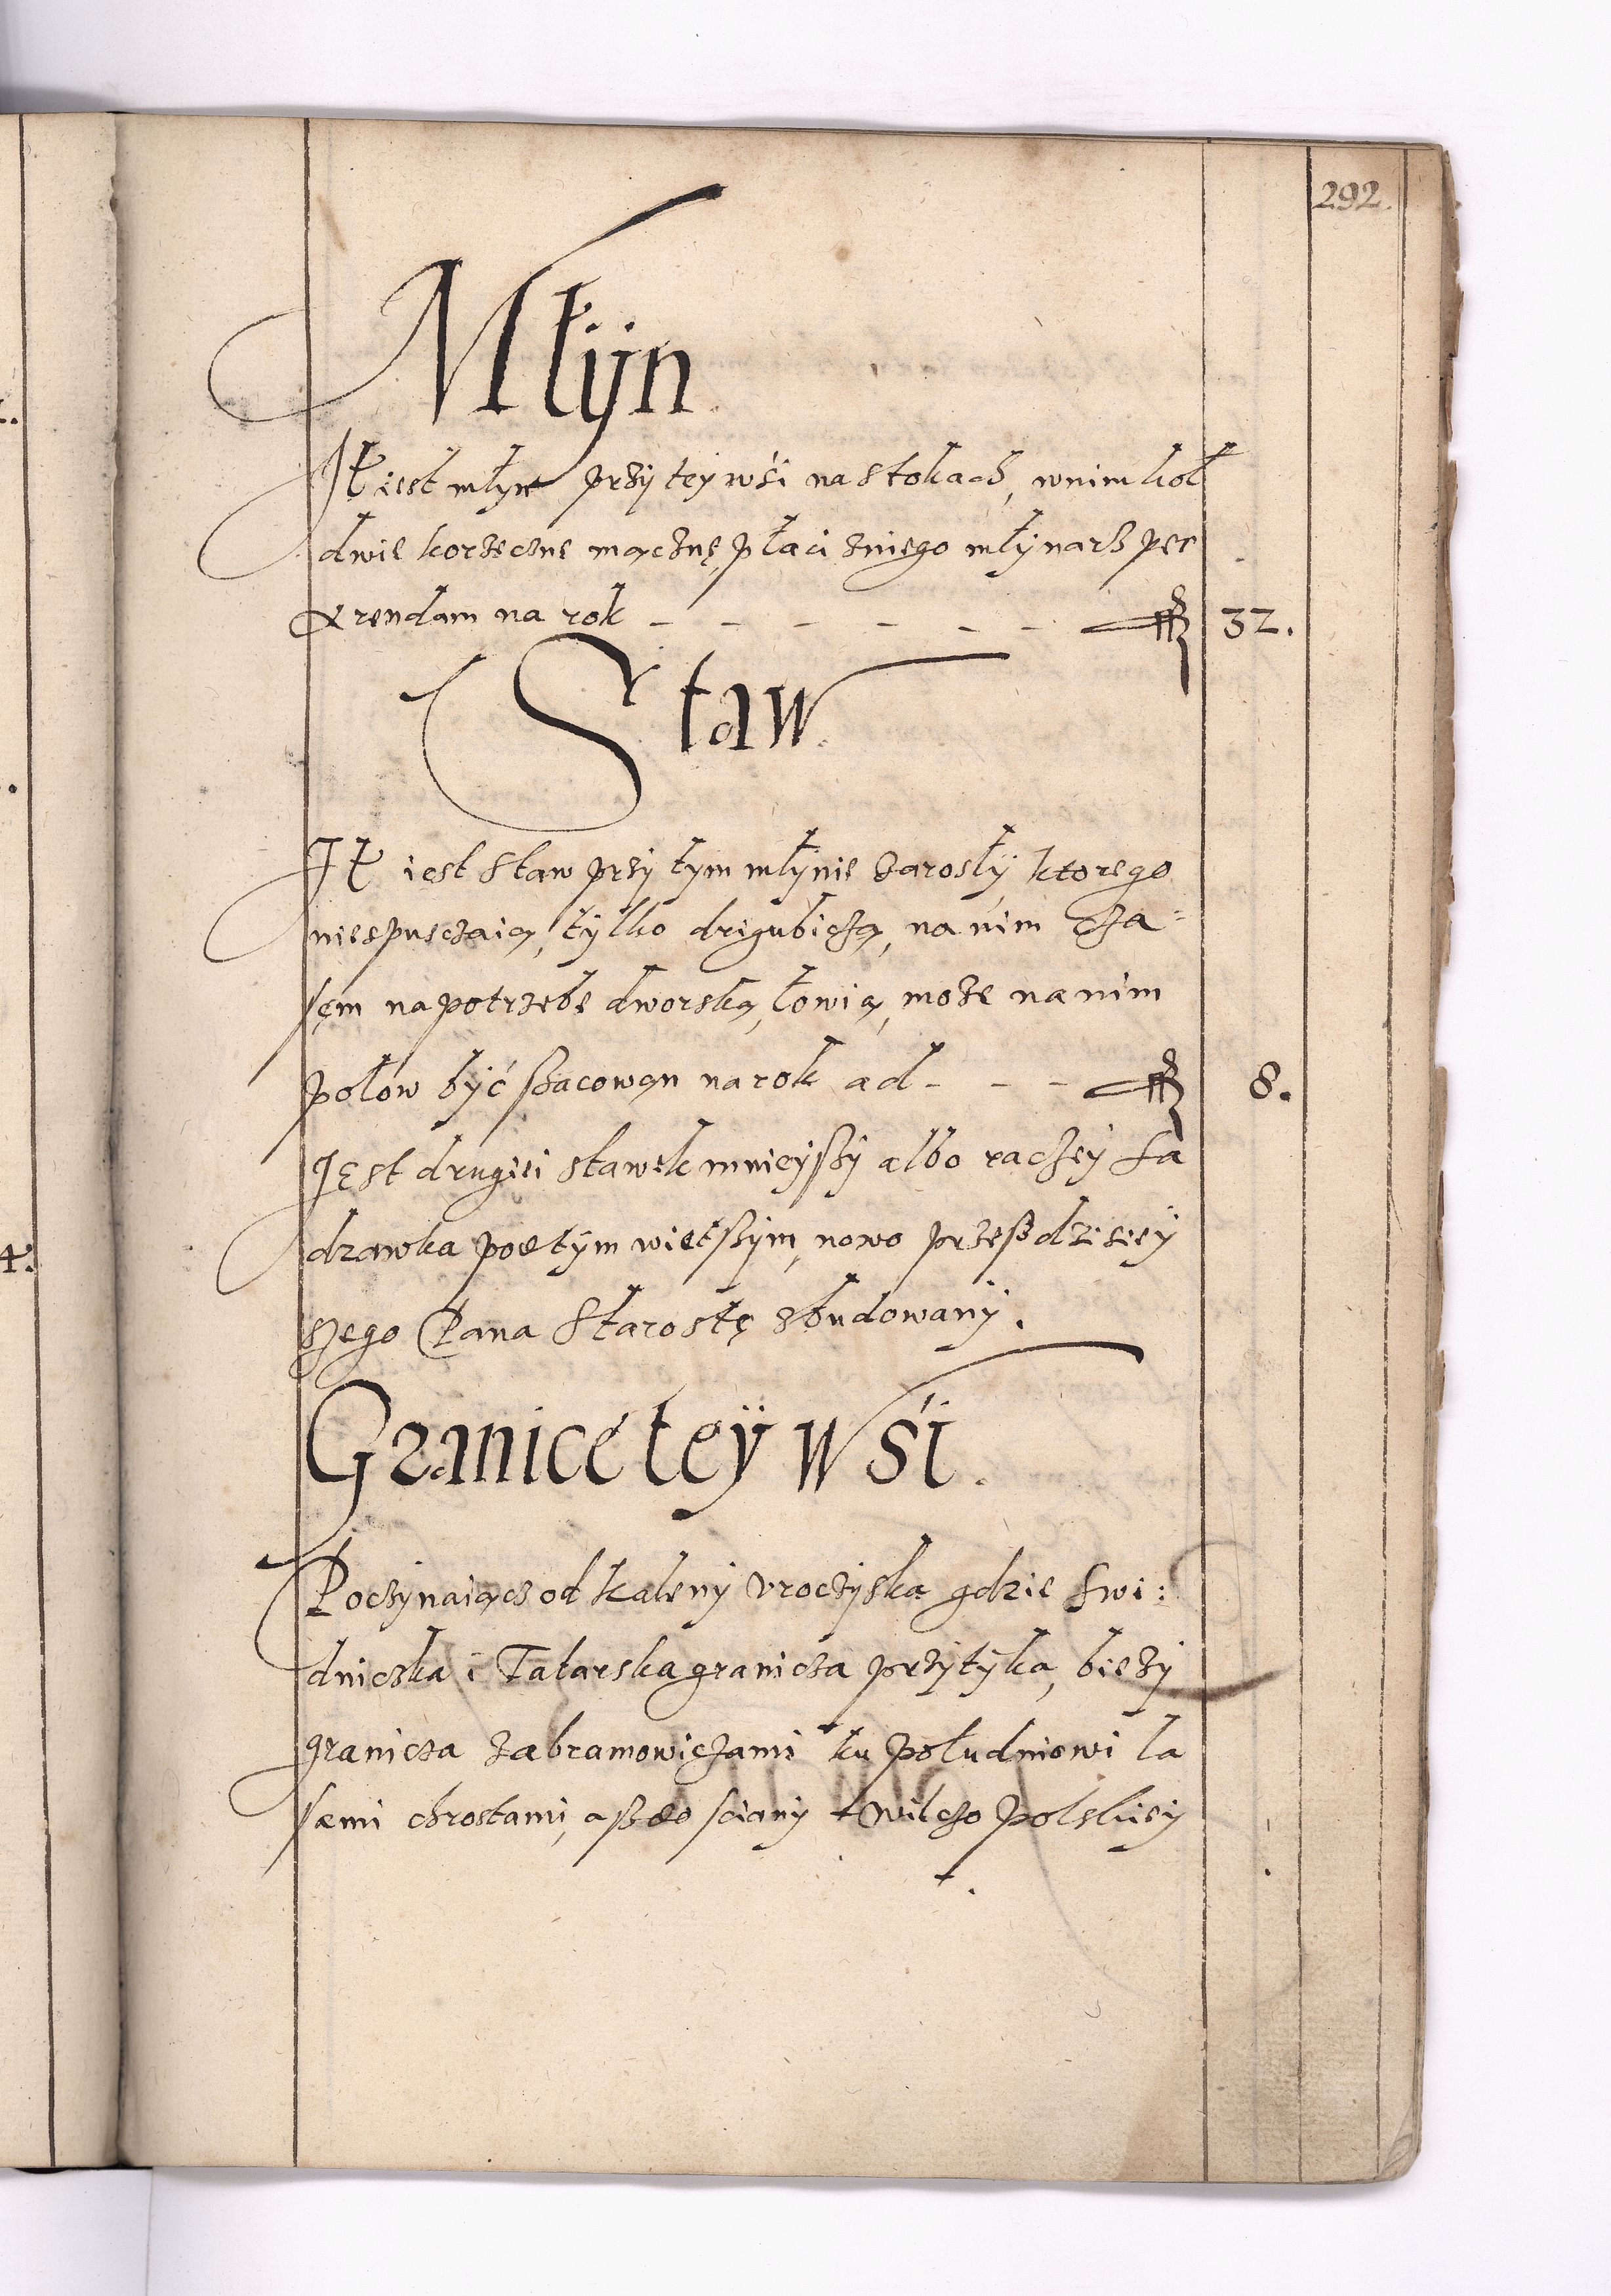 292.
Młÿn
It iest młyn przÿ teÿ wśi na Stokach, w nim koł
dwie korzeczne mączne, płaci zniego młÿnarz per
Arendam na rok - - - - - - ff 32.
Staw
It iest Staw przÿ tym młÿnie Zarosłÿ ktorego
niespusczaią, tÿlko drigubiczą, na nim Cza=
sem na potrzebe dworską, łowią, może na nim
połow bÿć szacowan na rok ad - - - ff 8.
Jest drugiei stawek mnieÿszÿ albo raczeÿ Sa
dzawka pod tÿm wietszÿm, nowo przesz dzisieÿ
szego Pana Starostę zbudowanÿ.
Granice teÿ wśi.
Poczÿnaiącz od Kalenÿ vroczÿska gdzie Swi:
dniczka i Tatarska granicza przÿtÿka, bieżÿ
granicza zabramowiczami ku południowi la
sami chrostami, asz do scianÿ + Wilczo polskieÿ
+.
4.